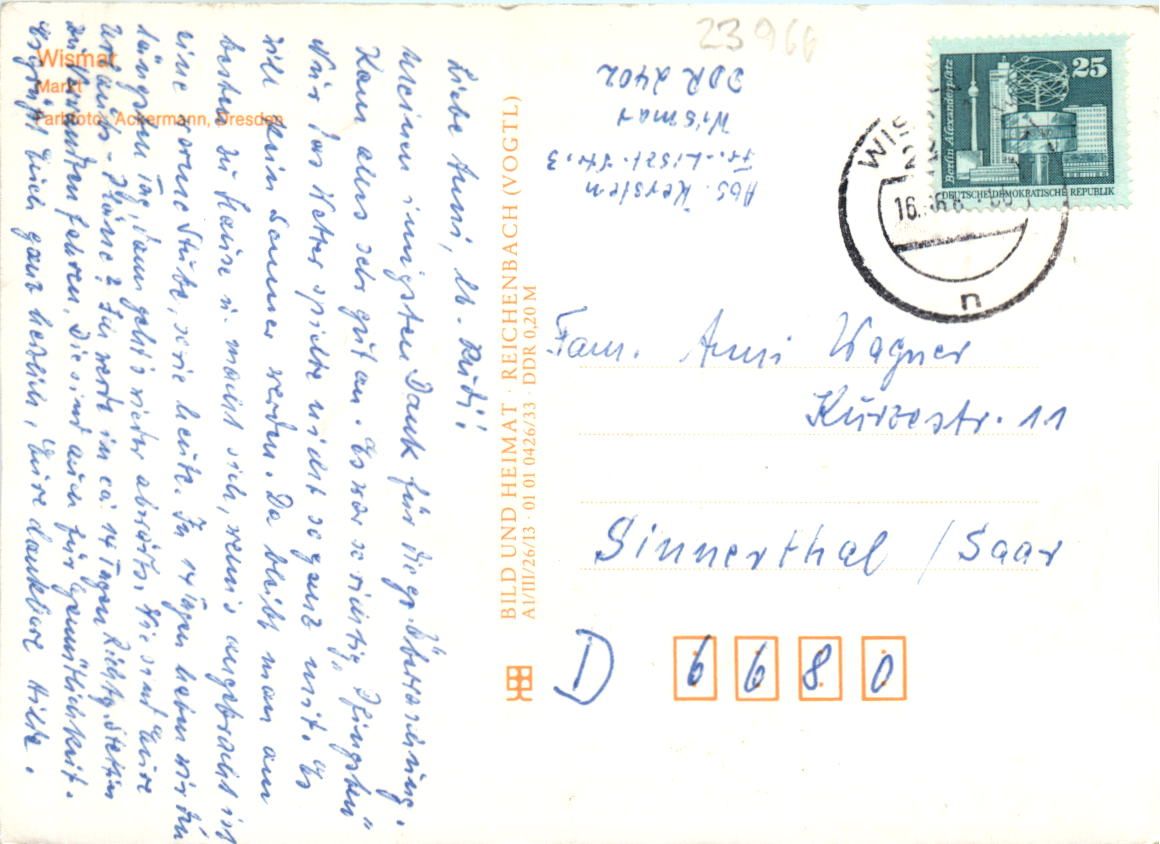 Wismar
Markt
Farbfoto: Ackermann, Dresden
Liebe Anni, lb. Rudi!
Meinen innigsten Dank für die gr. Überraschung.
Kam alles sehr gut an. Es war so richtig „Pfingsten“
Nur das Wetter spielte nicht so ganz mit. Es
will kein Sommer werden. Da bleibt man am
besten zu Hause u. macht sich, wenn's angebracht ist
eine warme Stube, so wie heute. In 14 Tagen haben wir den
längsten Tag, dann geht's wieder abwärts. Wie sind Eure
Urlaubs-Pläne? Ich werde in ca. 14 Tagen Richtg. Stettin
zu Verwandten fahren. Die sind auch für Gemütlichkeit.
Es grüßt Euch ganz herzlich, Eure dankbare Hilde.
BILD UND HEIMAT · REICHENBACH (VOGTL)
A1/III/26/13 · 01 01 0426/33 · DDR 0,20 M
23966
Abs. Kersten
Fr.-Liszt-Str. 3
Wismar
DDR 2402
Berlin Alexanderplatz
25
DEUTSCHE DEMOKRATISCHE REPUBLIK
WIS
16.
n
Fam. Anni Wagner
Kurzestr. 11
Sinnerthal / Saar
D 6680